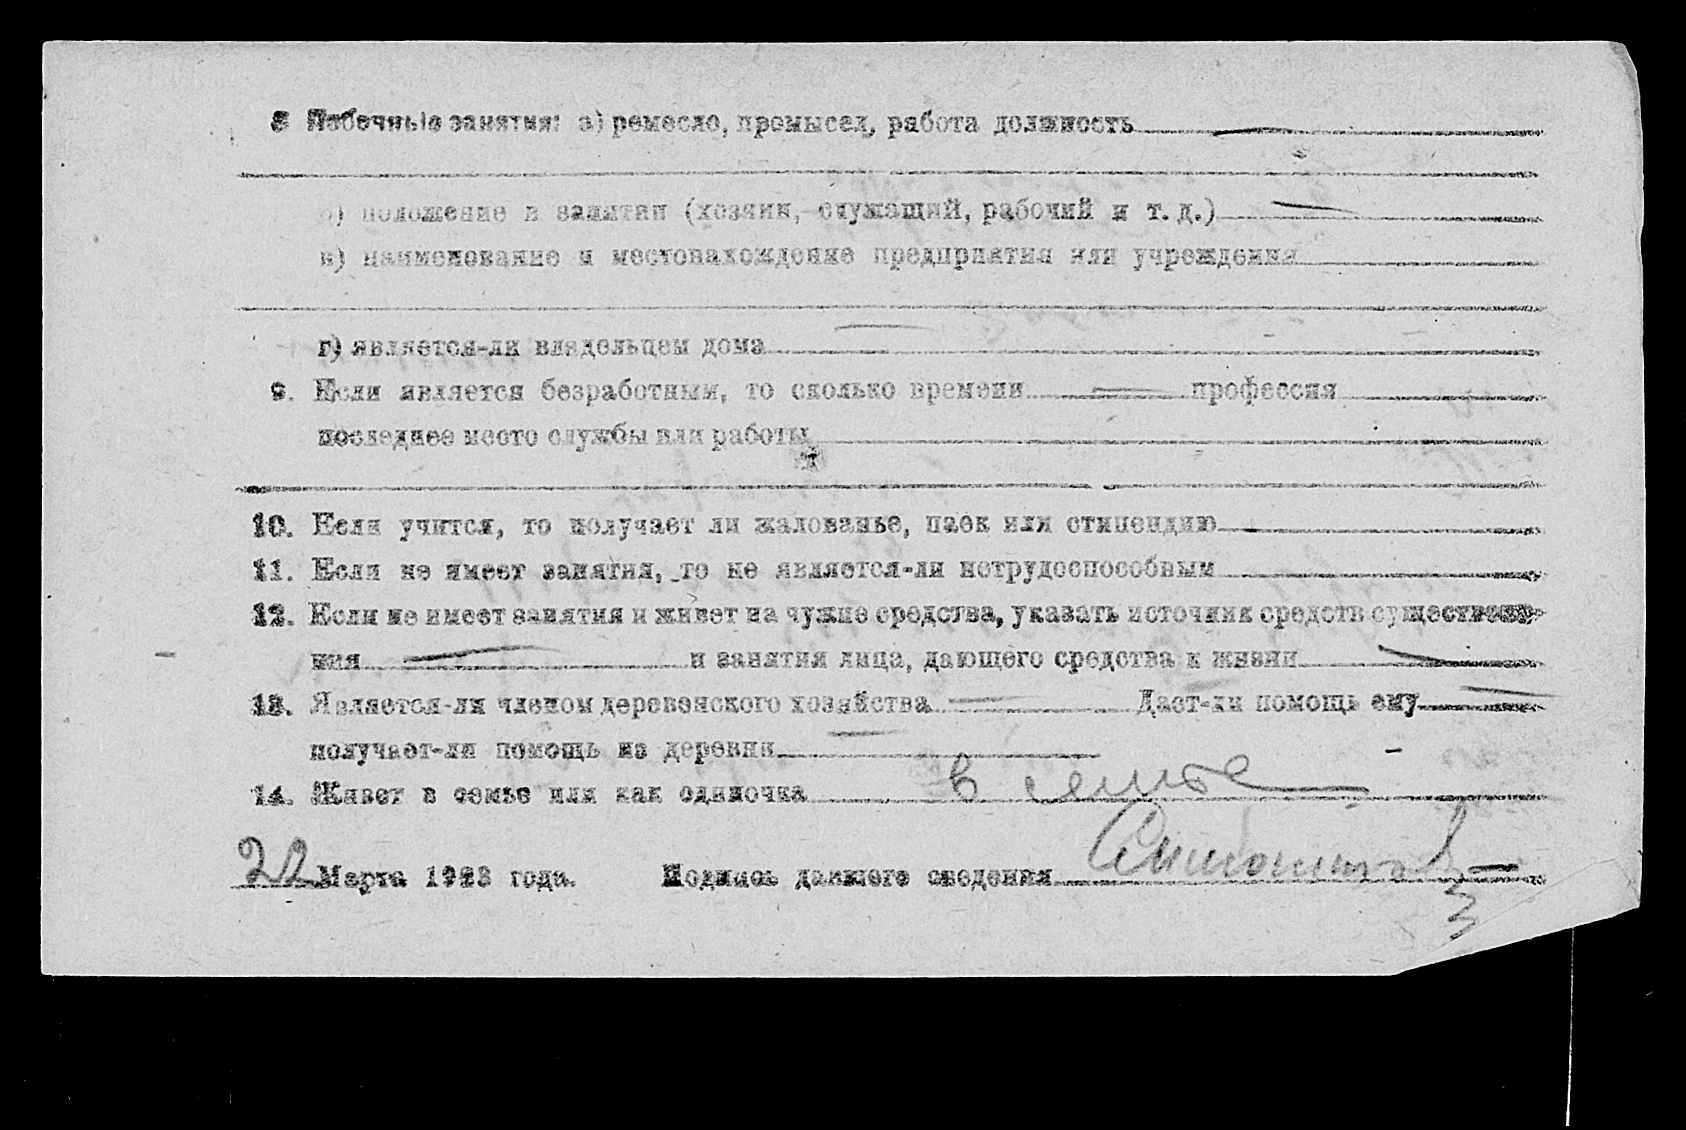 8 Побочные занятия: а) ремесло, промысел, работа должность
б) положение в занятии (хозяин, служащий, рабочий и т. д.)
в) наименование и местонахождение предприятия или учреждения
г) является-ли владельцем дома
9. Если является безработным, то сколько времени профессия
последнее место службы или работы
10. Если учится, то получает ли жалованье, паек или стипендию
11. Если не имеет занятия, то не является-ли нетрудоспособным
12. Если не имеет занятия и живет на чужие средства, указать источник средств существова-
ния и занятия лица, дающего средства к жизни
13. Является-ли членом деревенского хозяйства Дает-ли помощь ему
получает-ли помощь из деревни
14. Живет в семье или как одиночка в семье
22 Марта 1923 года. Подпись давшего сведения